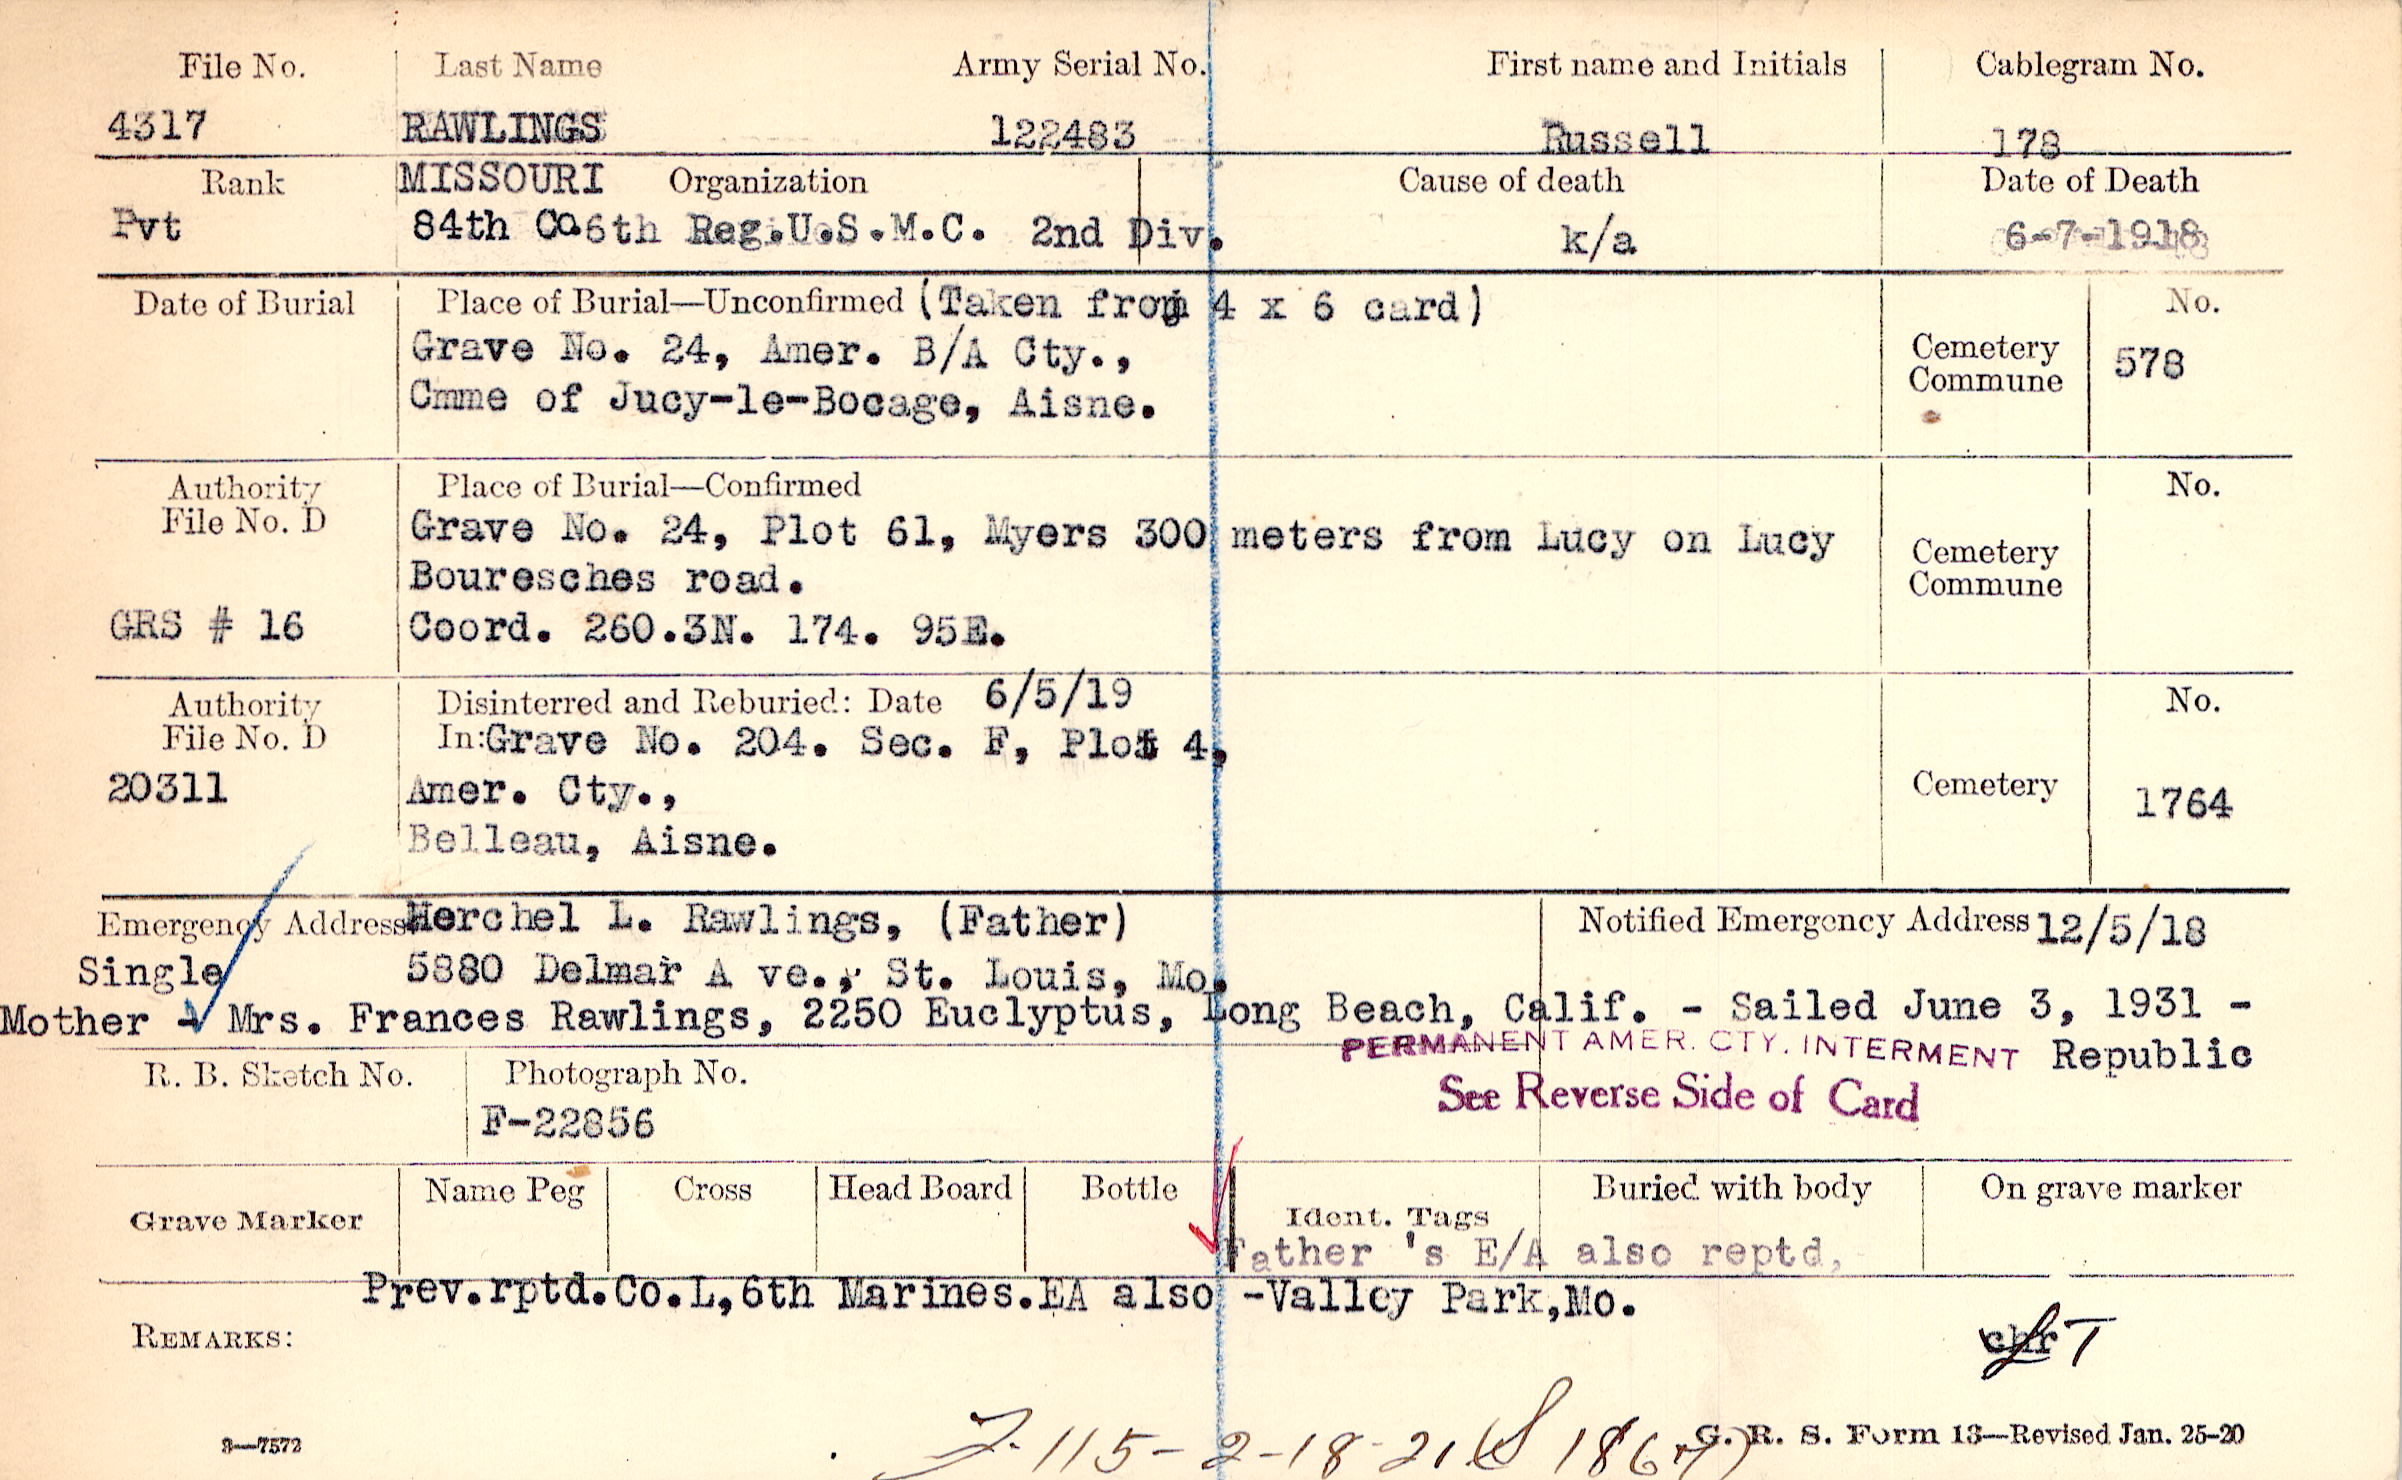 File No. Last Name Army Serial No. First name and Initials Cablegram No.
4317 RAWLINGS 122483 Russell 178
Rank MISSOURI Organization Cause of death Date of Death
Pvt 84th Co.6th Reg.U.S.M.C. 2nd Div. k/a 6-7-1918
Date of Burial Place of Burial—Unconfirmed (Taken from 4 x 6 card) No.
Grave No. 24, Amer. B/A Cty., Cemetery 578
Cmme of Jucy-le-Bocage, Aisne. Commune
Authority Place of Burial—Confirmed No.
File No. D Grave No. 24, Plot 61, Myers 300 meters from Lucy on Lucy Cemetery
Bouresches road. Commune
GRS # 16 Coord. 260.3N. 174. 95E.
Authority Disinterred and Reburied: Date 6/5/19 No.
File No. D In:Grave No. 204. Sec. F, Plot 4,
20311 Amer. Cty., Cemetery 1764
Belleau, Aisne.
Emergency Address Herchel L. Rawlings, (Father) Notified Emergency Address 12/5/18
Single 5880 Delmar A ve., St. Louis, Mo.
Mother - Mrs. Frances Rawlings, 2250 Euclyptus, Long Beach, Calif. - Sailed June 3, 1931 -
PERMANENT AMER. CTY. INTERMENT Republic
R. B. Sketch No. Photograph No. See Reverse Side of Card
F-22856
Grave Marker Name Peg Cross Head Board Bottle Ident. Tags Buried with body On grave marker
Father 's E/A also reptd,
Prev.rptd.Co.L,6th Marines.EA also -Valley Park,Mo.
REMARKS:
chr
3—7572 G. R. S. Form 13—Revised Jan. 25-20
115-2-18-21